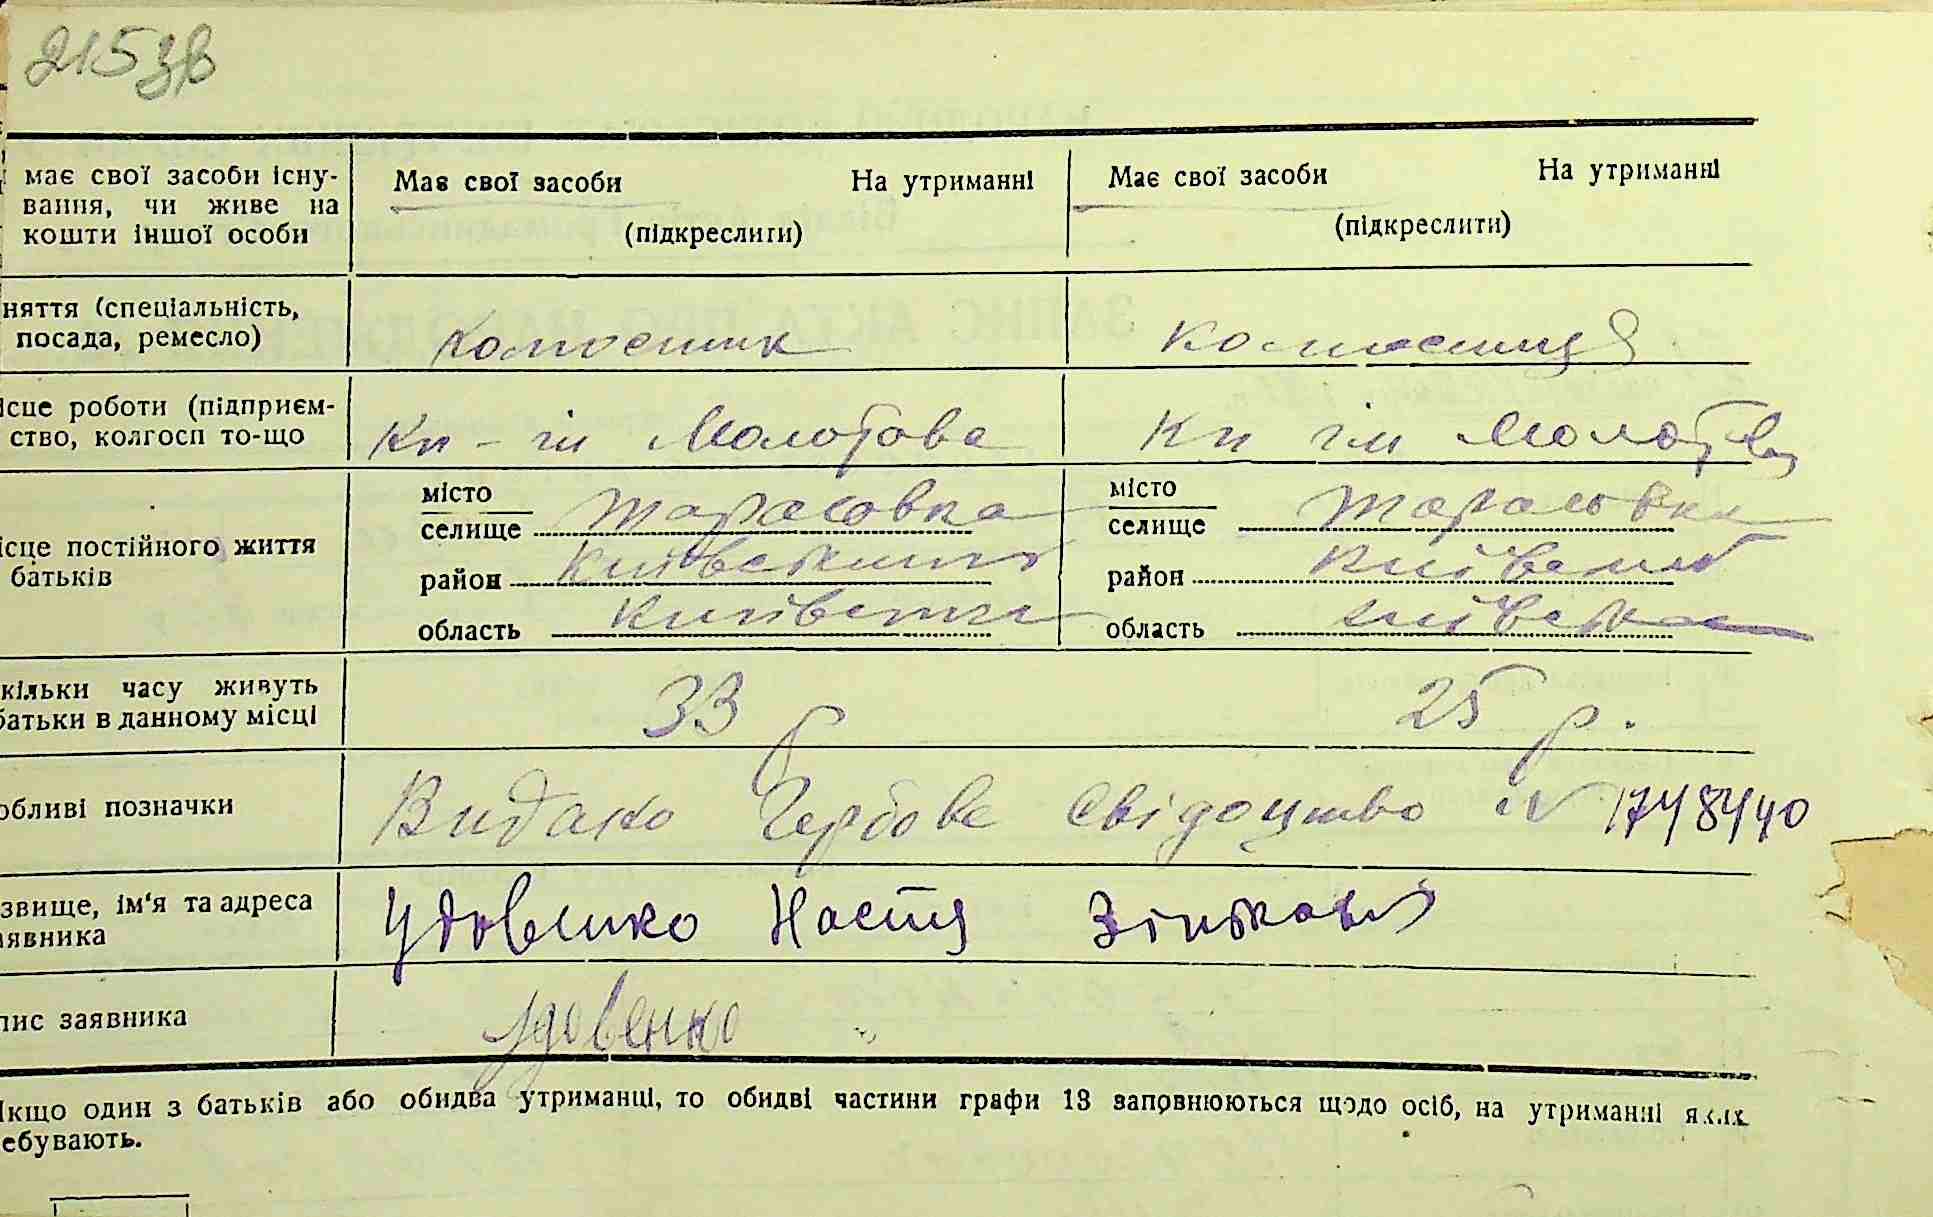 215зв
має свої засоби існу- Має свої засоби На утриманні Має свої засоби На утриманні
вання, чи живе на
кошти іншої особи (підкреслити) (підкреслити)
няття (спеціальність,
посада, ремесло) Колгоспник Колгоспниця
ісце роботи (підприєм-
ство, колгосп то-що Кп - ім Молотова Кп ім Молотова
місто місто
селище Тарасовка селище Тарасовка
ісце постійного життя
батьків район Київський район Київський
область Київська область Київська
кільки часу живуть
батьки в данному місці 33 р 25 р.
обливі позначки Видано Гербове свідоцтво № 1748440
звище, ім'я та адреса
аявника Удовенко Настя Зіньковна
пис заявника Удовенко
Якщо один з батьків або обидва утриманці, то обидві частини графи 13 заповнюються щодо осіб, на утриманні яких
ебувають.